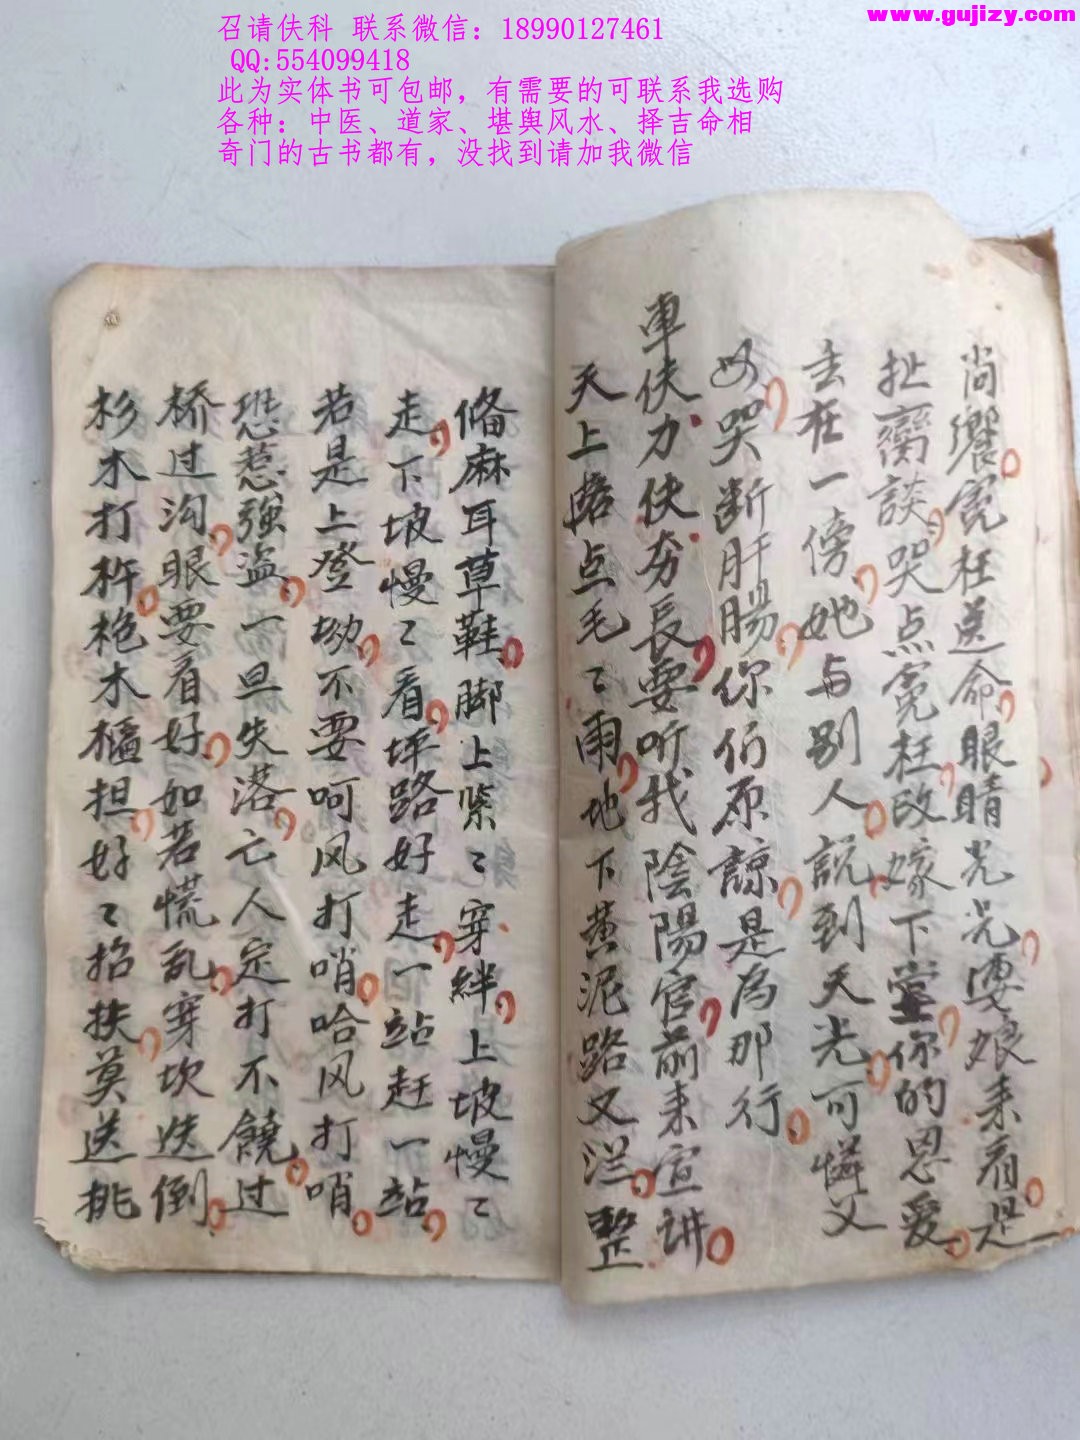 召请伕科 联系微信：18990127461
QQ:554099418
此为实体书可包邮，有需要的可联系我选购
各种：中医、道家、堪舆风水、择吉命相
奇门的古书都有，没找到请加我微信
www.gujizy.com
尚饗冤枉送命眼睛光光婆娘来看是
扯蛮談哭点冤枉改嫁下堂你的恩爱
去在一傍她与别人説到天光可憐父
母哭断肝腸你们原諒是为那行
車伕力伕夯長要听我陰陽官前来宣讲
天上落点毛〻雨地下黄泥路又滥整
俻麻耳草鞋脚上紧〻穿絆上坡慢〻
走下坡慢〻看坪路好走一站赶一站
若是上登坳不要呵风打哨哈风打哨
恐惹強盗一旦失落亡人定打不饒过
桥过沟眼要看好如若慌乱穿坎迭倒
杉木打杵 木 担好〻招扶莫送挑